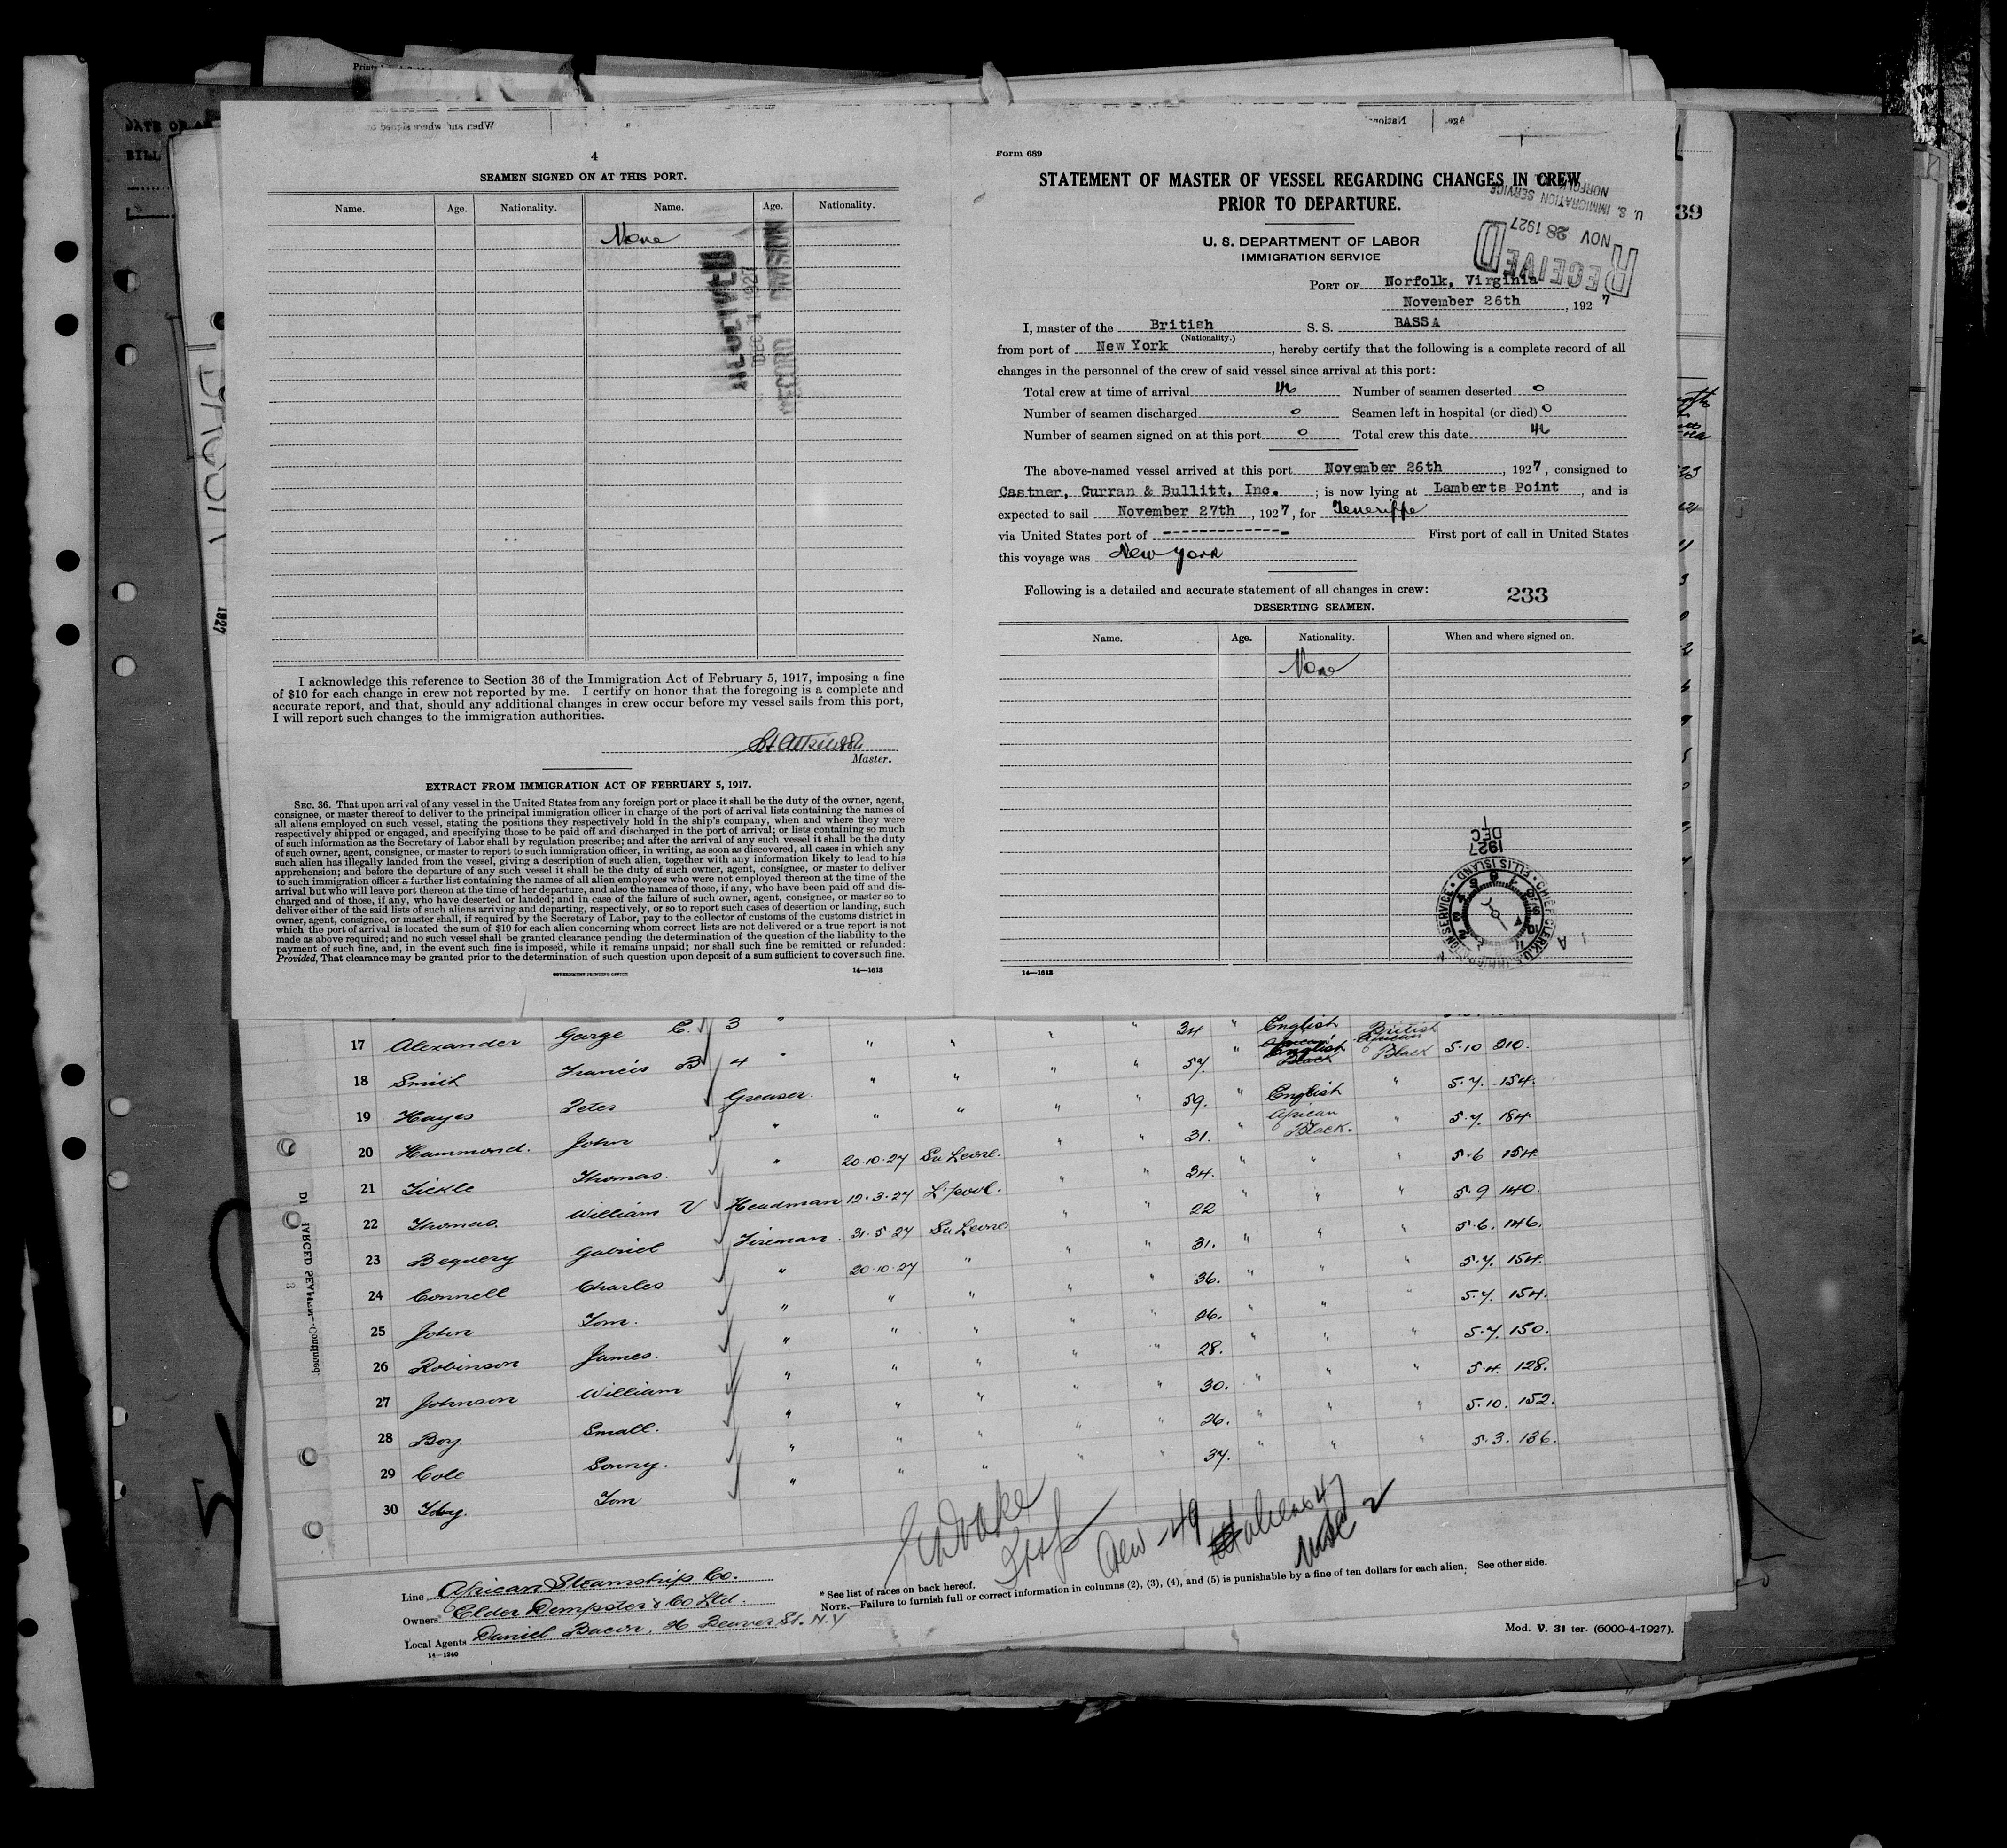 4
SEAMEN SIGNED ON AT THIS PORT.
Name. Age. Nationality. Name. Age. Nationality.
None
RECEIVED
DEC 1 1927
RECORD DIVISION
I acknowledge this reference to Section 36 of the Immigration Act of February 5, 1917, imposing a fine
of $10 for each change in crew not reported by me. I certify on honor that the foregoing is a complete and
accurate report, and that, should any additional changes in crew occur before my vessel sails from this port,
I will report such changes to the immigration authorities.
Master.
EXTRACT FROM IMMIGRATION ACT OF FEBRUARY 5, 1917.
SEC. 36. That upon arrival of any vessel in the United States from any foreign port or place it shall be the duty of the owner, agent,
consignee, or master thereof to deliver to the principal immigration officer in charge of the port of arrival lists containing the names of
all aliens employed on such vessel, stating the positions they respectively hold in the ship's company, when and where they were
respectively shipped or engaged, and specifying those to be paid off and discharged in the port of arrival; or lists containing so much
of such information as the Secretary of Labor shall by regulation prescribe; and after the arrival of any such vessel it shall be the duty
of such owner, agent, consignee, or master to report to such immigration officer, in writing, as soon as discovered, all cases in which any
such alien has illegally landed from the vessel, giving a description of such alien, together with any information likely to lead to his
apprehension; and before the departure of any such vessel it shall be the duty of such owner, agent, consignee, or master to deliver
to such immigration officer a further list containing the names of all alien employees who were not employed thereon at the time of the
arrival but who will leave port thereon at the time of her departure, and also the names of those, if any, who have been paid off and dis-
charged and of those, if any, who have deserted or landed; and in case of the failure of such owner, agent, consignee, or master so to
deliver either of the said lists of such aliens arriving and departing, respectively, or so to report such cases of desertion or landing, such
owner, agent, consignee, or master shall, if required by the Secretary of Labor, pay to the collector of customs of the customs district in
which the port of arrival is located the sum of $10 for each alien concerning whom correct lists are not delivered or a true report is not
made as above required; and no such vessel shall be granted clearance pending the determination of the question of the liability to the
payment of such fine, and, in the event such fine is imposed, while it remains unpaid; nor shall such fine be remitted or refunded:
Provided, That clearance may be granted prior to the determination of such question upon deposit of a sum sufficient to cover such fine.
GOVERNMENT PRINTING OFFICE 14—1613
Form 689
STATEMENT OF MASTER OF VESSEL REGARDING CHANGES IN CREW
PRIOR TO DEPARTURE.
U. S. IMMIGRATION SERVICE
NORFOLK
NOV 28 1927
RECEIVED
U. S. DEPARTMENT OF LABOR
IMMIGRATION SERVICE
PORT OF Norfolk, Virginia
November 26th, 1927
I, master of the British S. S. BASSA
(Nationality.)
from port of New York, hereby certify that the following is a complete record of all
changes in the personnel of the crew of said vessel since arrival at this port:
Total crew at time of arrival 46 Number of seamen deserted 0
Number of seamen discharged 0 Seamen left in hospital (or died) 0
Number of seamen signed on at this port 0 Total crew this date 46
The above-named vessel arrived at this port November 26th, 1927, consigned to
Castner, Curran & Bullitt, Inc.; is now lying at Lamberts Point, and is
expected to sail November 27th, 1927, for Teneriffe
via United States port of ------------ First port of call in United States
this voyage was New York
Following is a detailed and accurate statement of all changes in crew: 233
DESERTING SEAMEN.
Name. Age. Nationality. When and where signed on.
None
1927
DEC
1
CHIEF CLERK, U.S. IMMIGRATION SERVICE • ELLIS ISLAND
14—1613
39
17 Alexander George C. 3 " " " " " 34 " English British
18 Smith Francis B 4 " " " " " 57. " African Black African Black 5·10 210.
19 Hayes Peter Greaser. " " " " 59. " English " 5·7. 154.
20 Hammond. John " " " " " 31. " African Black. " 5·7. 184.
21 Tickle Thomas. " 20·10·27 Sa Leone. " " 34. " " " 5·6 154.
22 Thomas. William V Headman 12·3·27 L'pool. " " 22 " " " 5·9 140.
23 Bequery Gabriel Fireman. 31·5·27 Sa Leone " " 31. " " " 5·6. 146.
24 Connell Charles " 20·10·27 " " " 36. " " " 5·7. 154.
25 John Tom. " " " " " 26. " " " 5·7. 154.
26 Robinson James. " " " " " 28. " " " 5·7. 150.
27 Johnson William " " " " " 30. " " " 5·4. 128.
28 Boy. Small. " " " " " 26. " " " 5·10. 152.
29 Cole Sonny. " " " " " 37. " " " 5·3. 136.
30 Toby. Tom "
Crew - 49 aliens 47
USC 2
Line African Steamship Co.
Owners Elder Dempster & Co Ltd.
Local Agents Daniel Bacon, 26 Beaver St. N.Y
14—1240
* See list of races on back hereof.
NOTE.—Failure to furnish full or correct information in columns (2), (3), (4), and (5) is punishable by a fine of ten dollars for each alien. See other side.
Mod. V. 31 ter. (6000-4-1927).